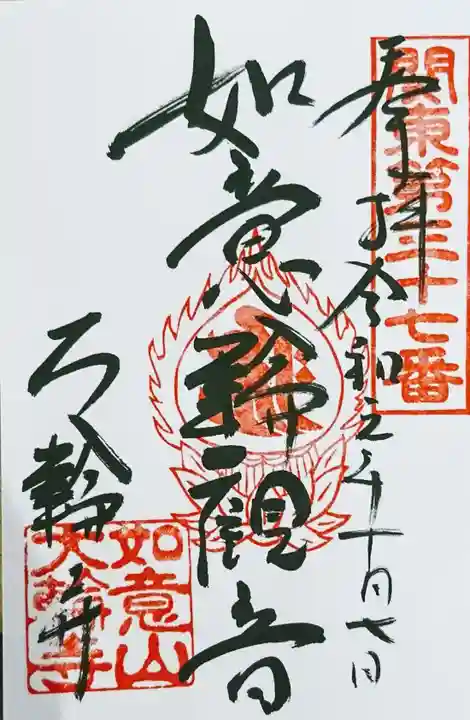 關東第三十七番
奉拝 令和元年十月七日
如意輪観音
大輪寺
如意山
大輪寺